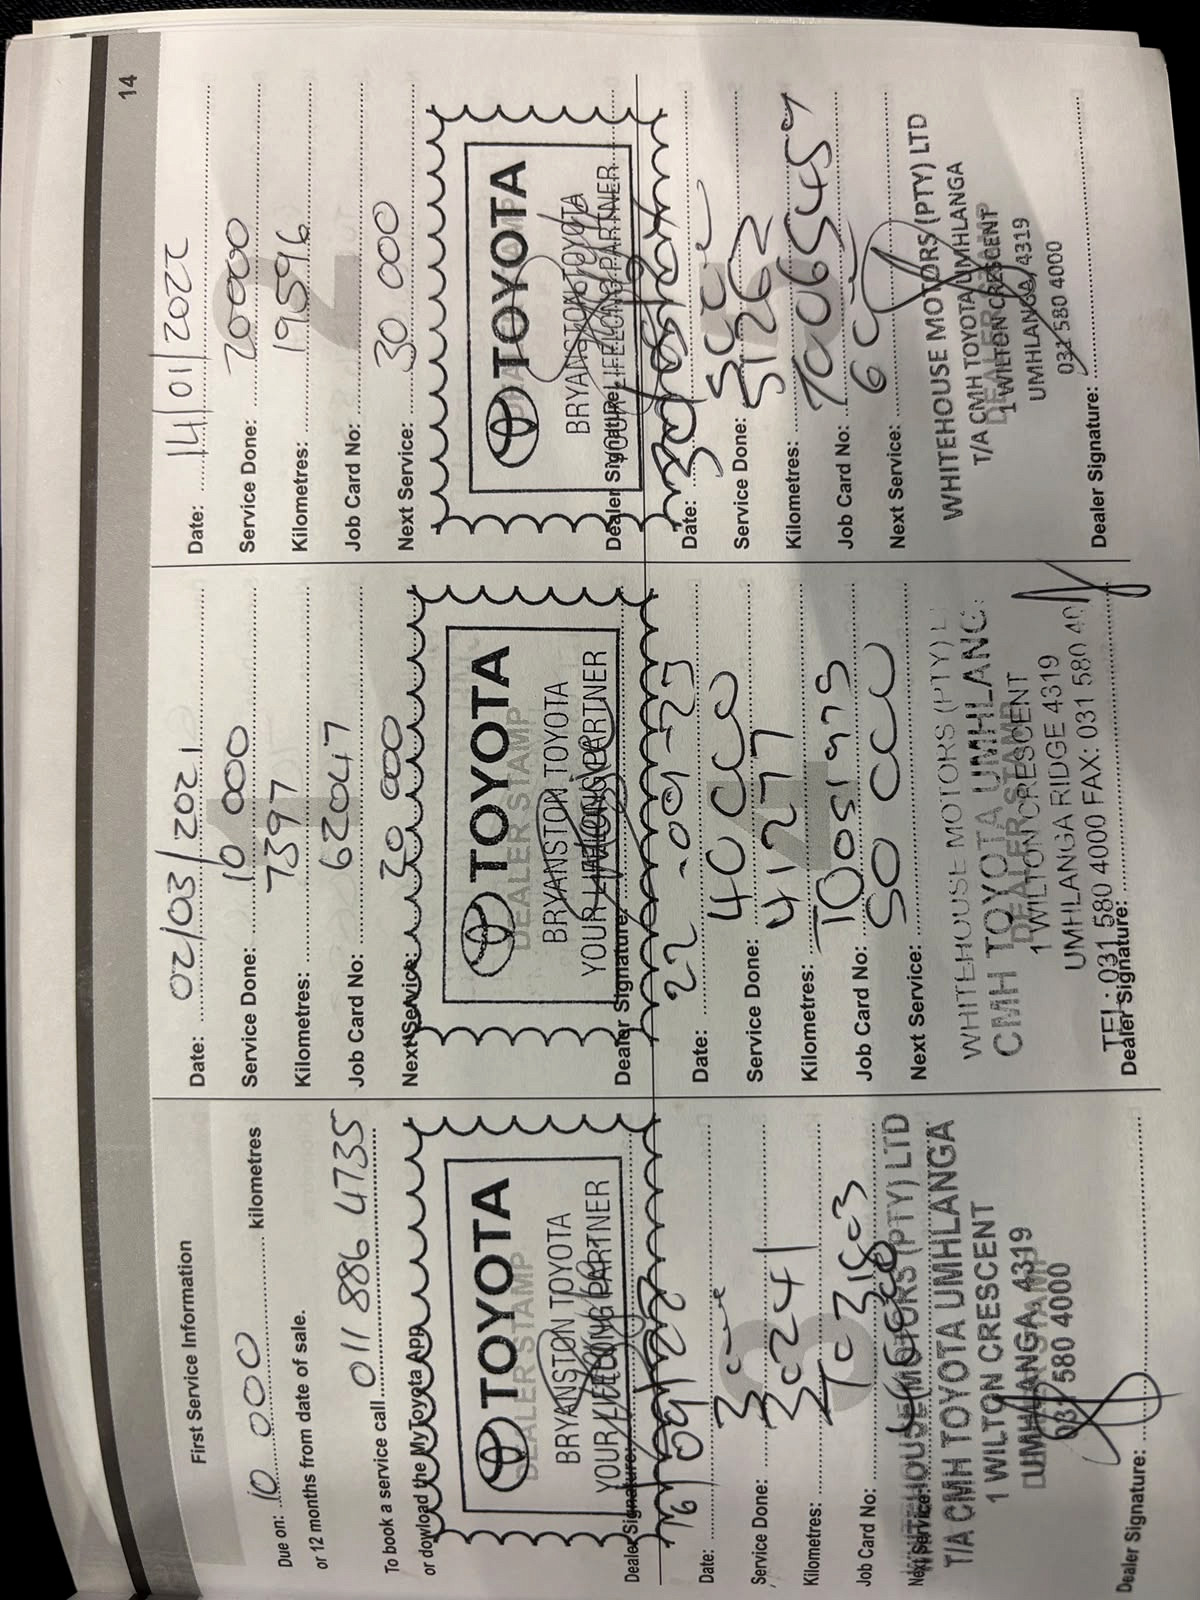 14
First Service Information
Due on: 10 000 kilometres
or 12 months from date of sale.
To book a service call 011 886 4735
or dowload the MyToyota APP
TOYOTA
DEALER STAMP
BRYANSTON TOYOTA
YOUR LIFELONG PARTNER
Dealer Signature:
Date: 02/03/2021
Service Done: 10 000
Kilometres: 7397
Job Card No: 62047
Next Service: 30 000
TOYOTA
DEALER STAMP
BRYANSTON TOYOTA
YOUR LIFELONG PARTNER
Dealer Signature:
Date: 14/01/2022
Service Done: 20000
Kilometres: 19596
Job Card No:
Next Service: 30 000
TOYOTA
BRYANSTON TOYOTA
YOUR LIFELONG PARTNER
Dealer Signature:
Date: 16/09/22
Service Done:
Kilometres: 30241
Job Card No:
Next Service:
WHITEHOUSE MOTORS (PTY) LTD
T/A CMH TOYOTA UMHLANGA
1 WILTON CRESCENT
UMHLANGA 4319
031 580 4000
Dealer Signature:
Date: 22-09-23
Service Done:
Kilometres: 41277
Job Card No:
Next Service:
WHITEHOUSE MOTORS (PTY) L
CMH TOYOTA UMHLANG
DEALER STAMP
1 WILTON CRESCENT
UMHLANGA RIDGE 4319
TEL: 031 580 4000 FAX: 031 580 40
Dealer Signature:
Date:
Service Done:
Kilometres: 51262
Job Card No:
Next Service:
WHITEHOUSE MOTORS (PTY) LTD
T/A CMH TOYOTA UMHLANGA
1 WILTON CRESCENT
UMHLANGA 4319
031 580 4000
Dealer Signature: